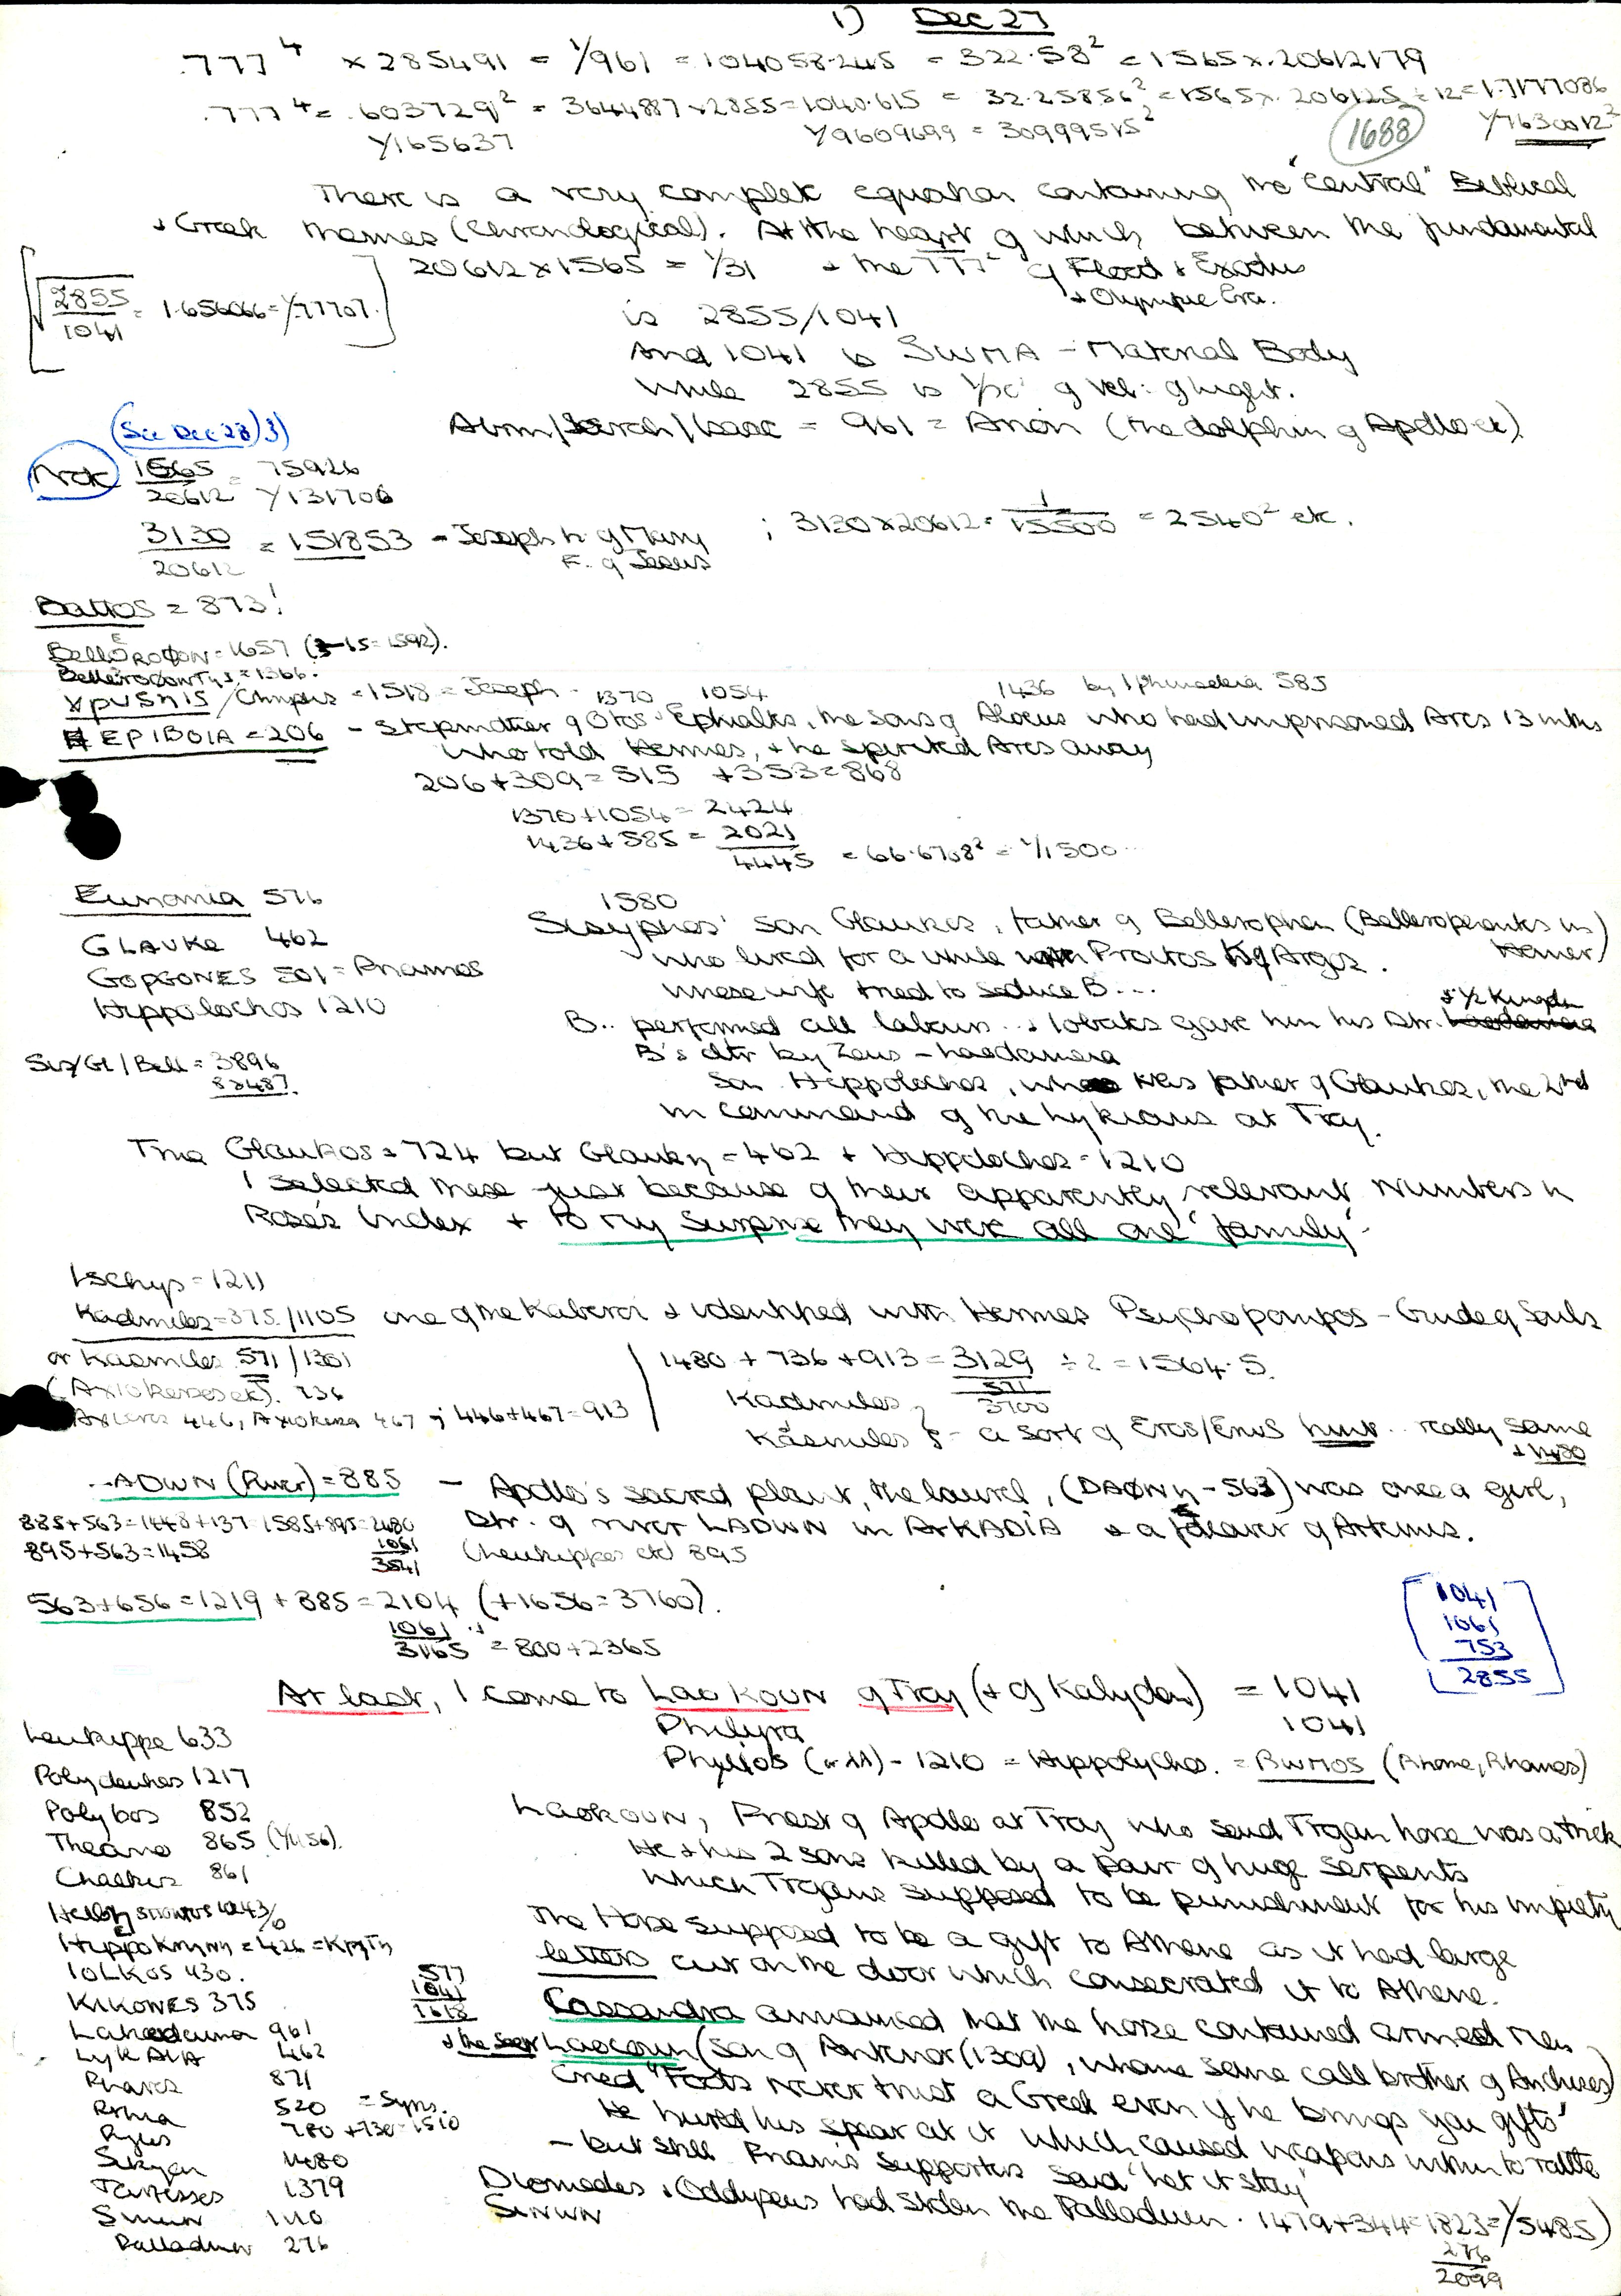 1) Dec 27
.777⁴ × 285491 = 1/961 = 104058.245 = 322.58² = 1565 x .20612179
.777⁴ = .603729² = 3644887 x 2855 = 1040.615 = 32.25856² = 1565 x .206125 ÷ 12 = 1.7177086
1/165637 1/9609699 = 30999515² 1688 1/763.0012²
There is a very complex equation containing the "central" Biblical
+ Greek themes (chronological). At the heart of which between the fundamental
20612 x 1565 = 1/31 + the 777² of Flood + Exodus
+ Olympic Era.
[√2855/1041 = 1.656066 = 1/.77707.]
is 2855/1041
And 1041 is SWMA - Material Body
while 2855 is 1/10 of Vel: of light.
(See Dec 28) 3)
Abrm/Sarah/Isaac = 961 = Arion (the dolphin of Apollo etc)
Note 1565/20612 = 75926 1/131706
3130/20612 = 151853 - Joseph h of Mary
F. of Jesus
; 3130 x 20612 = 1/15500 = 2540² etc.
Battos = 873!
BellEROΦWN = 1657 (3-15 = 1592).
BelleroΦonTηs = 1366.
XpuSηiS / Chryseis = 1518 = Joseph - 1370 1054 1436 by Iphimedeia 585
EPIBOIA = 206 - Stepmother of Otos + Ephialtes, the sons of Aloeus who had imprisoned Ares 13 mths
who told Hermes, + he spirited Ares away
206 + 309 = 515 + 353 = 868
1370 + 1054 = 2424
1436 + 585 = 2021
4445 = 66.6708² = 1/1500
Eunomia 576
GLAUKE 462
GOPGONES 501 = Priamos
Hippolochos 1210
Sis/Gl/Bell = 3896
1580
Sisyphos' son Glaukos, father of Bellerophon (Bellerophontes in Homer)
who lived for a while with Proitos Kg of Argos.
whose wife tried to seduce B....
B.. performed all labours .. + Iobates gave him his Dtr. + 1/2 Kingdm
B's dtr by Zeus - Laodameia
Son Hippolochos, who was father of Glaukos, the 2nd
in command of the Lykians at Troy.
True Glaukos = 724 but Glaukη = 462 + Hippolochos = 1210
I selected these just because of their apparently relevant numbers in
Rose's Index + to my surprise they were all one 'family'
Ischys = 1211
Kadmilos = 375/1105 one of the Kabeiroi + identified with Hermes Psychopompos - Guide of Souls
or Kasmilos 571/1301
(Axiokersos etc). 736
Axieros 446, Axiokersa 467 ; 446 + 467 = 913
1480 + 736 + 913 = 3129 ÷ 2 = 1564.5.
571
3700
Kadmilos
Kasmilos } - a sort of Eros/Erius hunt .. really same
+ 1480
..ADWN (River) = 885 - Apollo's sacred plant, the laurel, (DAΦNη - 563) was once a girl,
885 + 563 = 1448 + 137 = 1585 + 895 = 2480 Dtr. of river LADWN in ARKADIA + a follower of Artemis.
895 + 563 = 1458 1061 (Leukippos etc) 895
3541
563 + 656 = 1219 + 885 = 2104 (+ 1656 = 3760).
1061
3165 = 800 + 2365
[1041
1061
753
2855]
At last, I come to LaoKOWN of Troy (+ of Kalydon) = 1041
Philyra 1041
Phylios (or λλ) - 1210 = Hippolychos. = BWMOS (Rhome, Rhomes)
Leukippe 633
Polydeukes 1217
Polybos 852
Theano 865 (1/1156).
Chalkis 861
Hellηspontos 1243/0
HippoKrηnη = 426 = KρηTη
IOLKOS 430.
KIKONES 375
Lakedaimon 961
LykAIA 462
Phares 871
Rhia 520 = Syris.
Pyles 780 + 730 = 1510
Sikyon 1480
Tartessos 1379
Sinwn 1110
Palladium 276
Laokown, Priest of Apollo at Troy who said Trojan horse was a trick
He + his 2 sons killed by a pair of huge serpents
which Trojans supposed to be punishment for his impiety
The Horse supposed to be a gift to Athene as it had large
letters cut on the door which consecrated it to Athene.
577
1041
1618
Cassandra announced that the horse contained armed men
+ the seer Laocown (son of Antenor (1309), whome some call brother of Anchises)
cried "Fools never trust a Greek even if he brings you gifts"
He hurled his spear at it which caused weapons within to rattle
- but still Priam's supporters said 'Let it stay'
Diomedes + Oddyseus had stolen the Palladium. 1479 + 344 = 1823 = 1/5485)
SINWN
276
2099